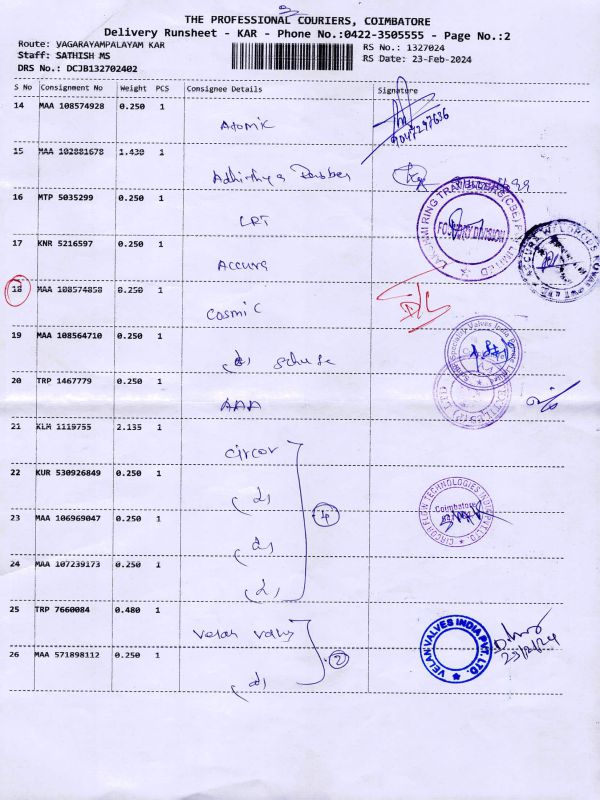 THE PROFESSIONAL COURIERS, COIMBATORE
Delivery Runsheet - KAR - Phone No.:0422-3505555 - Page No.:2
Route: YAGARAYAMPALAYAM KAR
RS No.: 1327024
Staff: SATHISH MS
RS Date: 23-Feb-2024
DRS No.: DCJB132702402
S No Consignment No Weight PCS Consignee Details Signature
14 MAA 108574928 0.250 1
Atomic
9047297636
15 MAA 102881678 1.430 1
16 MTP 5035299 0.250 1
LRT
LAKSHMI RING TRAVELLERS(CBE) PVT LIMITED
FOUNDRY DIVISION
17 KNR 5216597 0.250 1
Accura
18 MAA 108574858 0.250 1
Cosmic
19 MAA 108564710 0.250 1
Specialty Valves India Private Limited
20 TRP 1467779 0.250 1
AAA
21 KLM 1119755 2.135 1
Circor
22 KUR 530926849 0.250 1
(d)
4
CIRCOR FLOW TECHNOLOGIES INDIA PVT. LTD.
Coimbatore
23 MAA 106969047 0.250 1
(d)
24 MAA 107239173 0.250 1
(d)
25 TRP 7660084 0.480 1
Velan Valves
VELAN VALVES INDIA PVT. LTD.
23/2/24
26 MAA 571898112 0.250 1
(d)
2